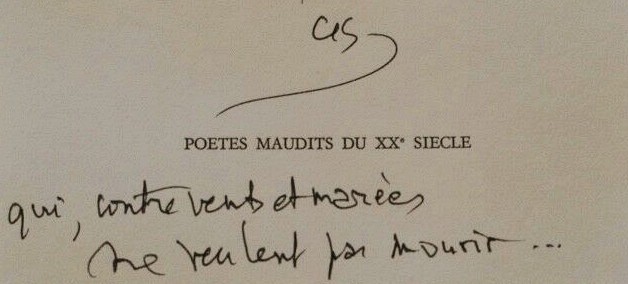 ces
POETES MAUDITS DU XXᵉ SIECLE
qui, contre vents et marées
ne veulent pas mourir ...